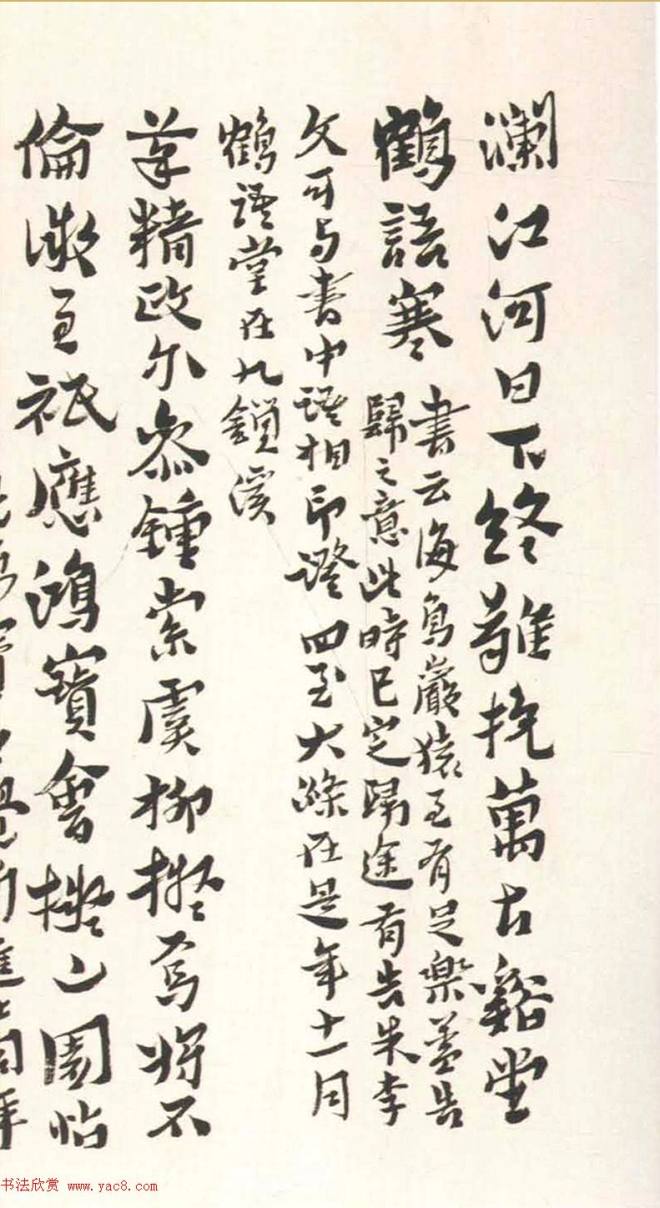 瀾江河日下終難挽萬古谿堂
鶴語寒
書云海鳥巖猿有足樂蓋告
歸之意此時已定歸途有告朱李
文可与書中語相印證四至大滌在是年十一月
鶴語堂在九鎖溪
筆精政尔参鍾索虞柳擬焉將不
倫祇應鴻寶會擬山園帖
书法欣赏 www.yac8.com